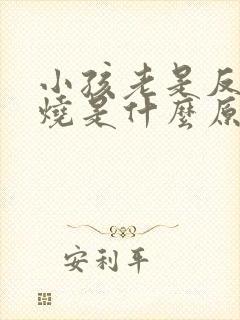 小孩老是反
燒是什麼原
安利平